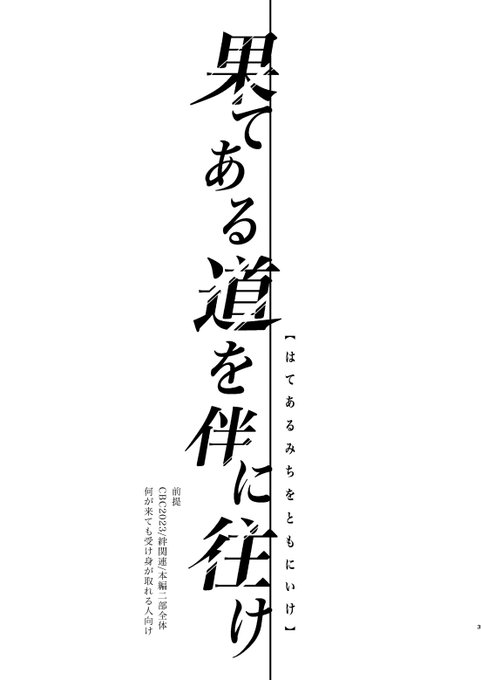 【はてあるみちをともにいけ】
果てある道を伴に往け
前提
CBC2023/絆関連/本編二部全体
何が来ても受け身が取れる人向け
3